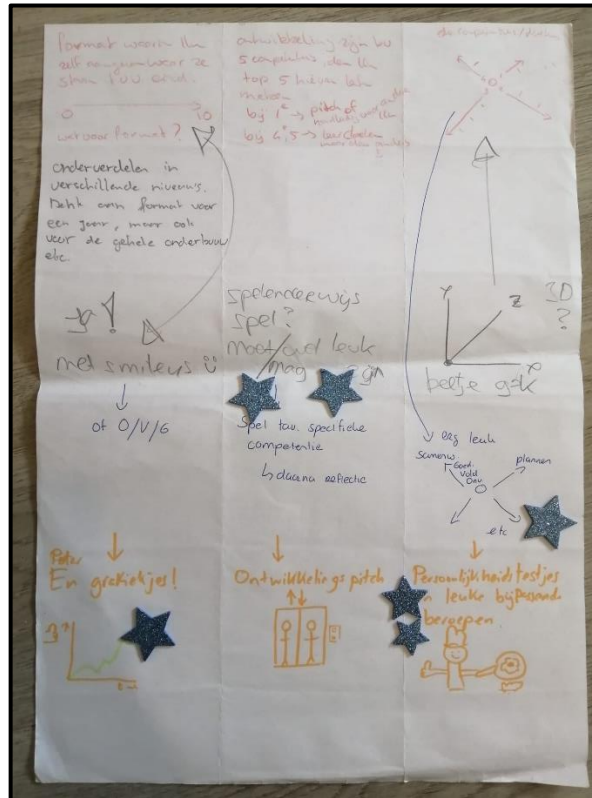 format waarin lln
zelf aangeven waar ze
staan t.o.v. eind.
0 10
wat voor format?
onderverdelen in
verschillende niveaus.
Denk aan format voor
een jaar, maar ook
voor de gehele onderbouw
etc.
ja!
met smileys
of O/V/G
Peter
En grafiekjes!
ontwikkeling zijn bv
5 competenties den lln
top 5 laten
bij 1e → pitch of
bij 4, 5 →
spelenderwijs
spel?
moet wel leuk
mag
Spel tav. specifieke
competentie
↳ daarna reflectie
Ontwikkelings pitch
Y
Z
X
3D
?
beetje gek
erg leuk
samenw.
Goed
Vold
Onv
plannen
etc
Persoonlijkheidstestjes
n leuke bijpassende
beroepen.